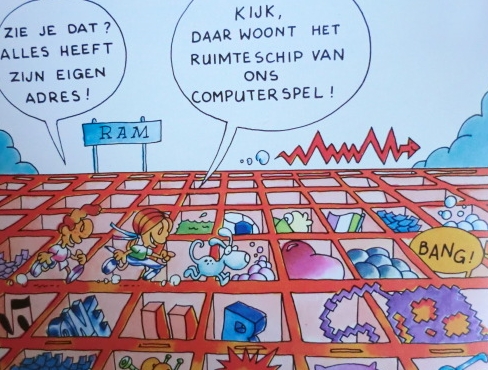 ZIE JE DAT?
ALLES HEEFT
ZIJN EIGEN
ADRES!
KIJK,
DAAR WOONT HET
RUIMTESCHIP VAN
ONS
COMPUTERSPEL!
RAM
BANG!